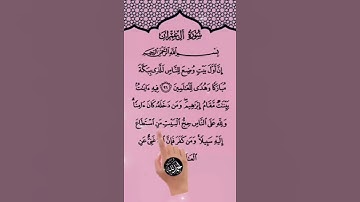 سورة آل عمران
بسم الله الرحمن الرحيم
إِنَّ أَوَّلَ بَيْتٍ وُضِعَ لِلنَّاسِ لَلَّذِي بِبَكَّةَ
مُبَارَكًا وَهُدًى لِّلْعَالَمِينَ ﴿٩٦﴾ فِيهِ ءَايَٰتٌ
بَيِّنَٰتٌ مَّقَامُ إِبْرَٰهِيمَ وَمَن دَخَلَهُ كَانَ ءَامِنًا
وَلِلَّهِ عَلَى النَّاسِ حِجُّ الْبَيْتِ مَنِ اسْتَطَاعَ
إِلَيْهِ سَبِيلًا وَمَن كَفَرَ فَإِنَّ غَنِيٌّ عَنِ